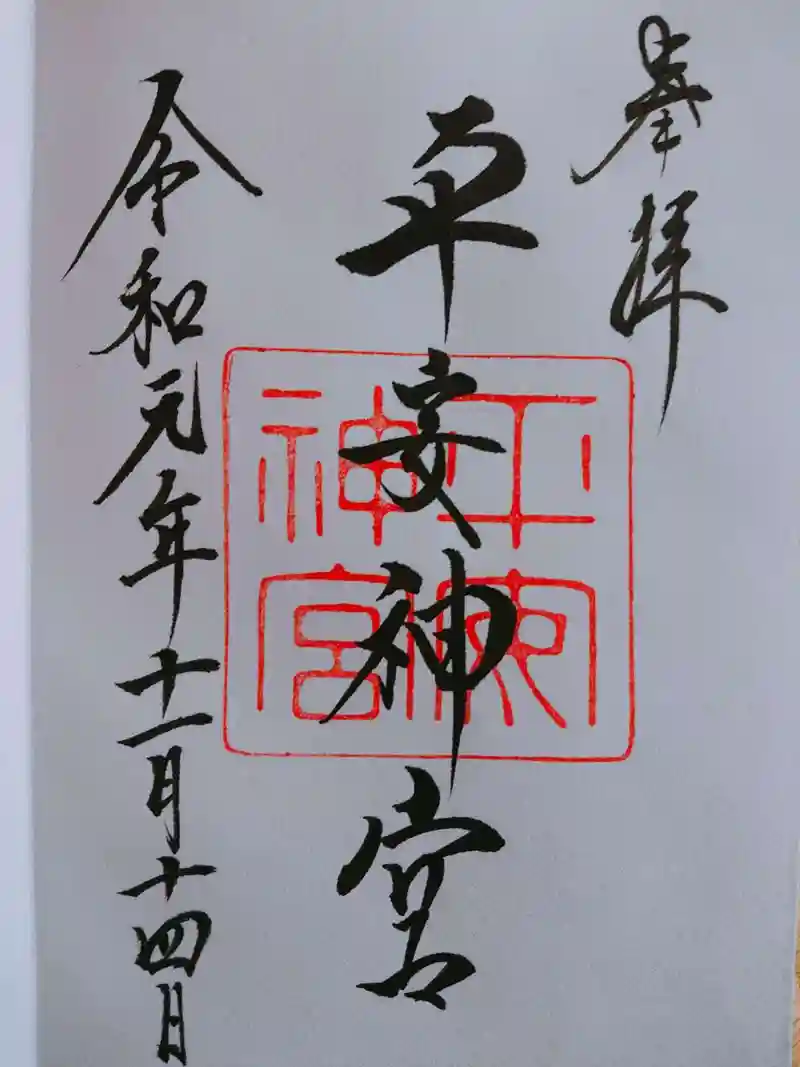 奉拝
平安神宮
令和元年十一月十四日
平安
神宮